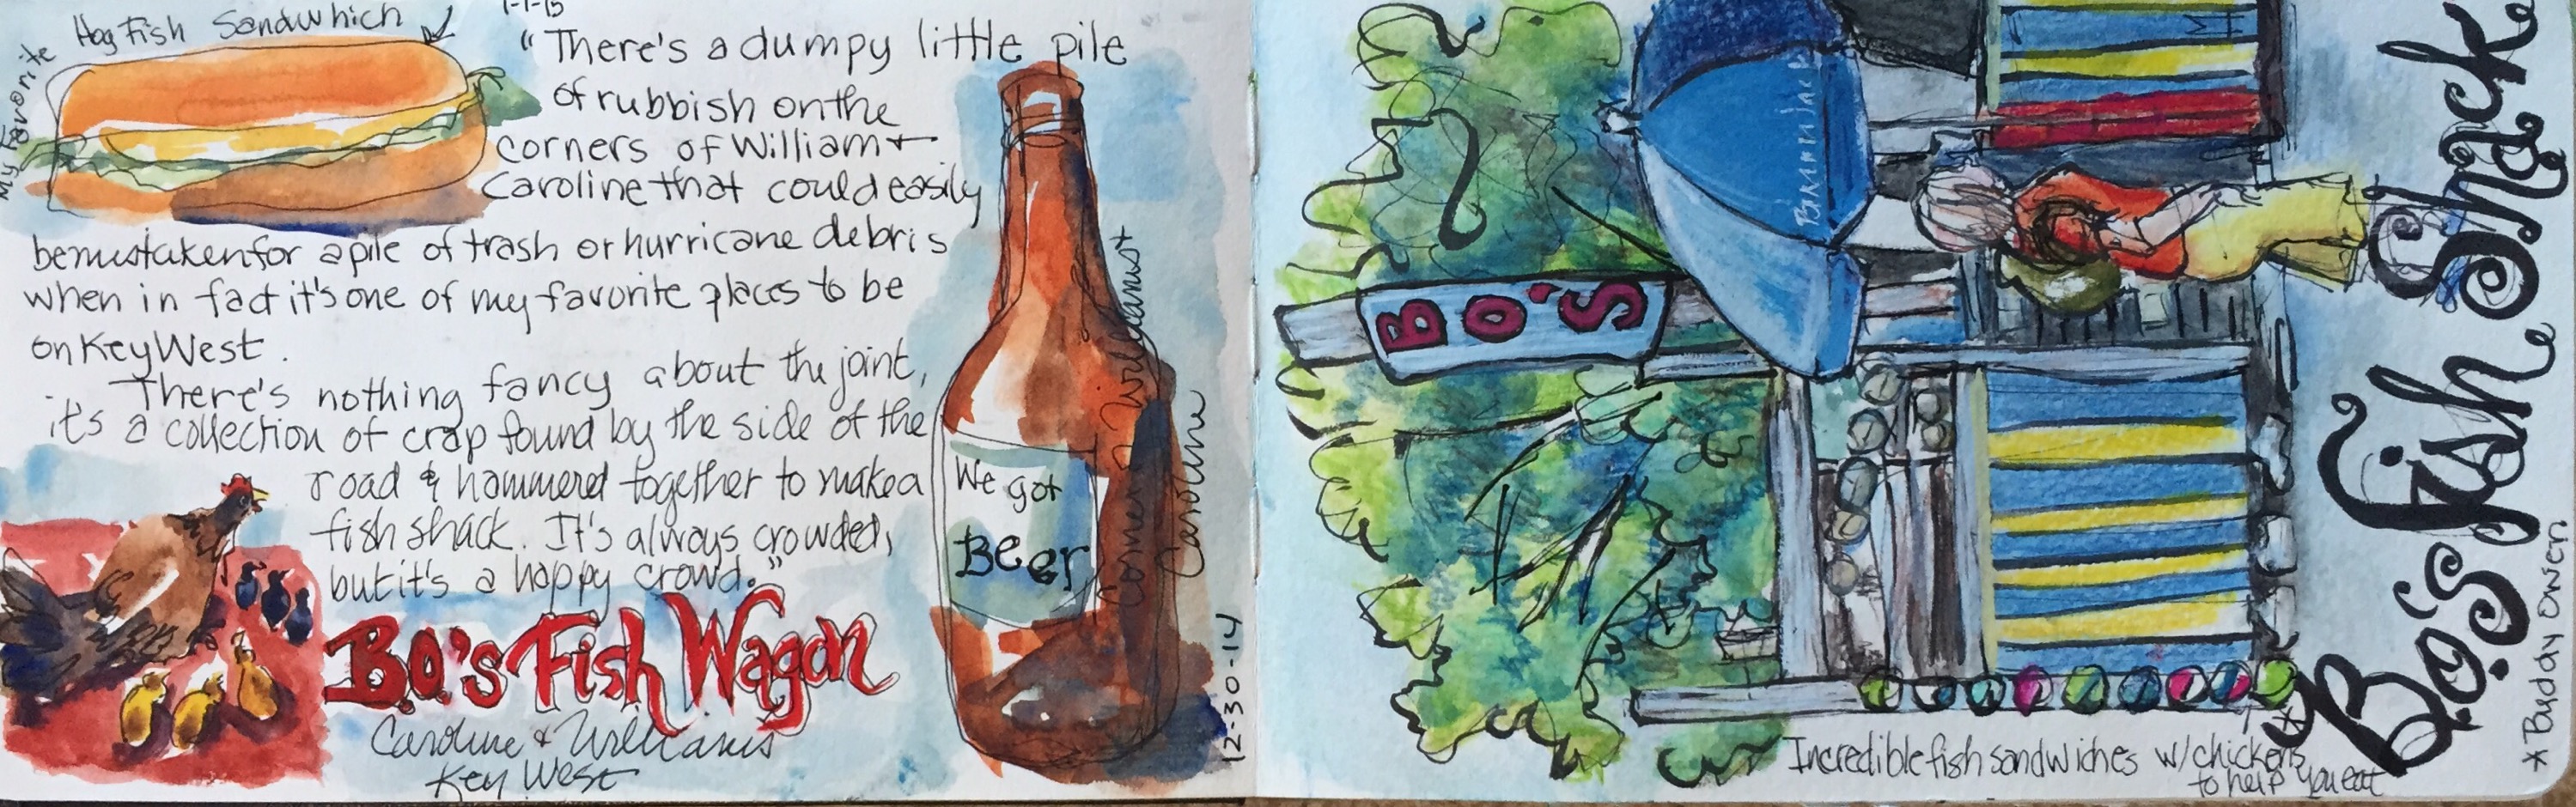 My Favorite
Hog Fish Sandwhich
1-1-15
"There's a dumpy little pile
of rubbish on the
corners of William +
Caroline that could easily
be mistaken for a pile of trash or hurricane debris
when in fact it's one of my favorite places to be
on Key West.
There's nothing fancy about the joint,
it's a collection of crap found by the side of the
road & hammered together to make a
fish shack. It's always crowded,
but it's a happy crowd."
B.O.'s Fish Wagon
Caroline & Williams
Key West
We got
Beer
Corner of Williams +
Caroline
12-30-14
BO'S
Bimini Jack
Bo's Fish Shack
* Buddy Owen
Incredible fish sandwiches w/chickens
to help you eat